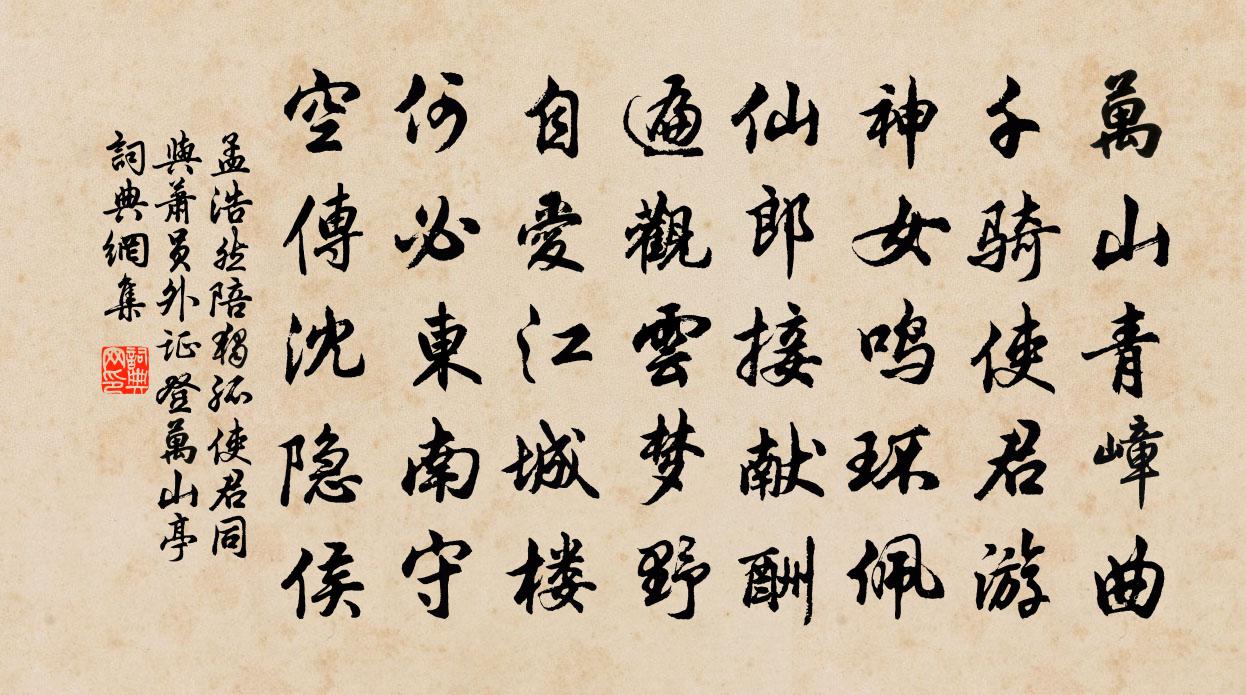 萬山青嶂曲
千骑使君游
神女鸣环佩
仙郎接献酬
遍觀雲梦野
自愛江城楼
何必東南守
空傳沈隐侯
孟浩然陪獨孤使君同
與蕭員外证登萬山亭
詞典網集
詞典
网印